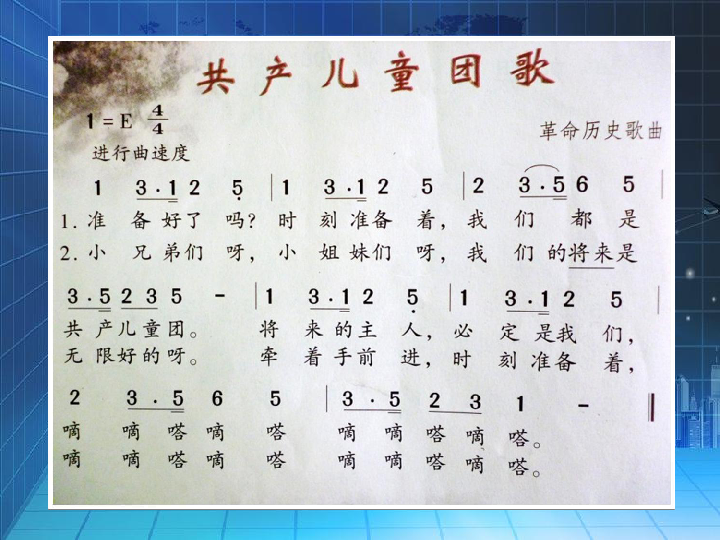 共产儿童团歌
1=E 4/4
革命历史歌曲
进行曲速度
1 3·1 2 5 | 1 3·1 2 5 | 2 3·5 6 5 |
1. 准 备 好了 吗? 时 刻 准备 着, 我 们 都 是
2. 小 兄 弟们 呀, 小 姐 妹们 呀, 我 们 的将来是
3·5 2 3 5 - | 1 3·1 2 5 | 1 3·1 2 5 |
共 产儿 童 团。 将 来 的主 人, 必 定 是我 们,
无 限好 的 呀。 牵 着 手前 进, 时 刻 准备 着,
2 3·5 6 5 | 3·5 2 3 1 - ‖
嘀 嘀 嗒 嘀 嗒 嘀 嘀 嗒 嘀 嗒。
嘀 嘀 嗒 嘀 嗒 嘀 嘀 嗒 嘀 嗒。